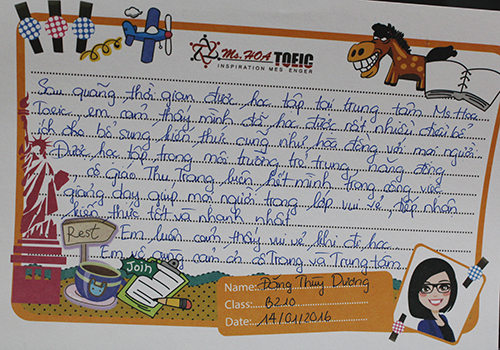 Ms. HOA TOEIC
INSPIRATION MESSENGER
Sau quãng thời gian được học tập tại trung tâm Ms Hoa
Toeic, em cảm thấy mình đã học được rất nhiều điều bổ
ích cho bổ sung kiến thức cũng như hòa đồng với mọi người.
Được học tập trong môi trường trẻ trung, năng động,
cô giáo Thu Trang luôn hết mình trong công việc
giảng dạy giúp mọi người trong lớp vui vẻ, tiếp nhận
kiến thức tốt và nhanh nhất.
Em luôn cảm thấy vui vẻ khi đi học.
Em vô cùng cảm ơn cô Trang và Trung tâm.
Rest
Join
Name: Đặng Thùy Dương
Class: B210
Date: 14/01/2016